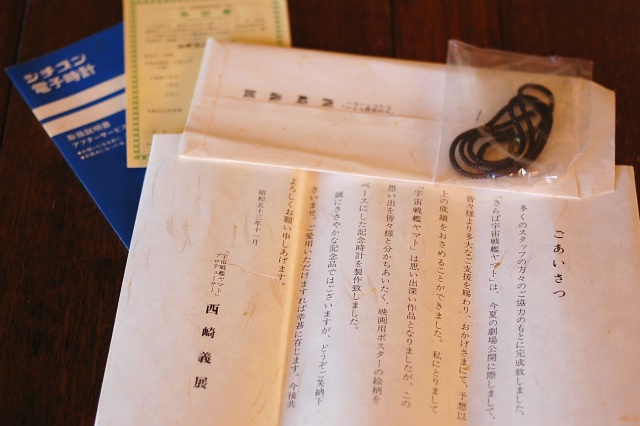 シチズン
電子時計
取扱説明書
アフターサービス
西崎義展
ごあいさつ
多くのスタッフの方々のご協力のもとに完成致しました、
「さらば宇宙戦艦ヤマト」は、今夏の劇場公開に際しまして、
皆々様より多大なご支援を賜わり、おかげさまにて、予想以
上の成績をおさめることができました。私にとりまして
「宇宙戦艦ヤマト」は思い出深い作品となりましたが、この
思い出を皆々様と分かちあいたく、映画用ポスターの絵柄を
ベースにした記念時計を製作致しました。
誠にささやかな記念品ではございますが、どうぞご笑納下
さいませ。ご愛用いただけますれば幸甚に存じます。今後共
よろしくお願い申しあげます。
昭和五十三年十一月
「宇宙戦艦ヤマト」
プロデューサー
西崎義展